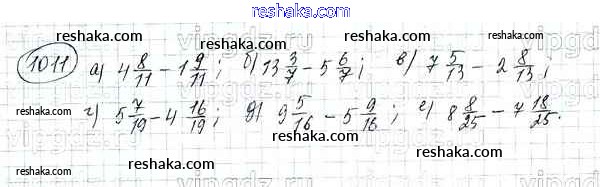 reshaka.com
1011 а) 4 8/11 - 1 9/11; б) 13 3/7 - 5 6/7; в) 7 5/13 - 2 8/13;
reshaka.com reshaka.com reshaka.com
г) 5 7/19 - 4 16/19; д) 9 5/16 - 5 9/16; е) 8 8/25 - 7 18/25.
reshaka.com reshaka.com reshaka.com
reshaka.com